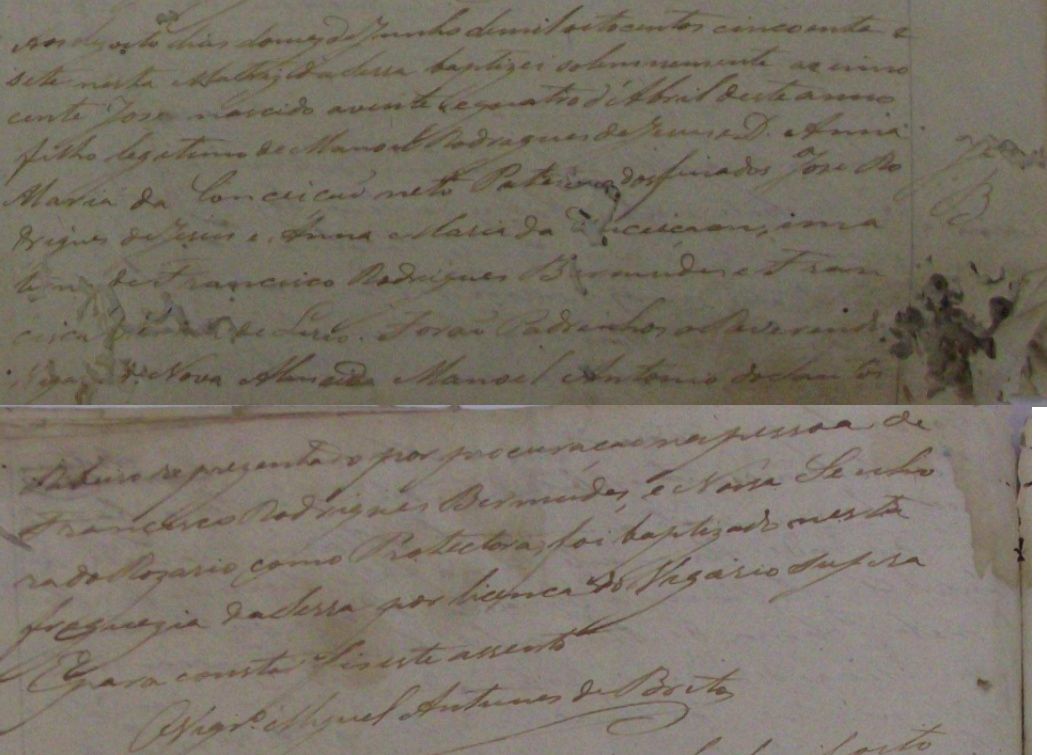 dias do mez de Junho de mil oitocentos cincoenta e
sete nesta Matriz da Serra baptizei solemnemente ao inno
cente José nascido a vente e quatro d'Abril deste anno
filho legitimo de Manoel Rodrigues de Jesus e D. Anna
Maria da Conceicaõ neto Paterno dos finados José Ro
drigues de Jesus e Anna Maria da Conceicaõ, e ma
terno de Francisco Rodrigues Bermudes e Fran
cisca de Foraõ Padrinhos o Reverendo
Vigario de Nova Almeida Manoel Antonio dos Santos
representado por procuraçaõ na pessoa de
Francisco Rodrigues Bermudes, e Nossa Senho
ra do Rozario como Protectora, foi baptizado nesta
freguezia da Serra por licença do Vigario supra
E para constar fiz este assento
O Vigrº Miguel Antunes de Brito